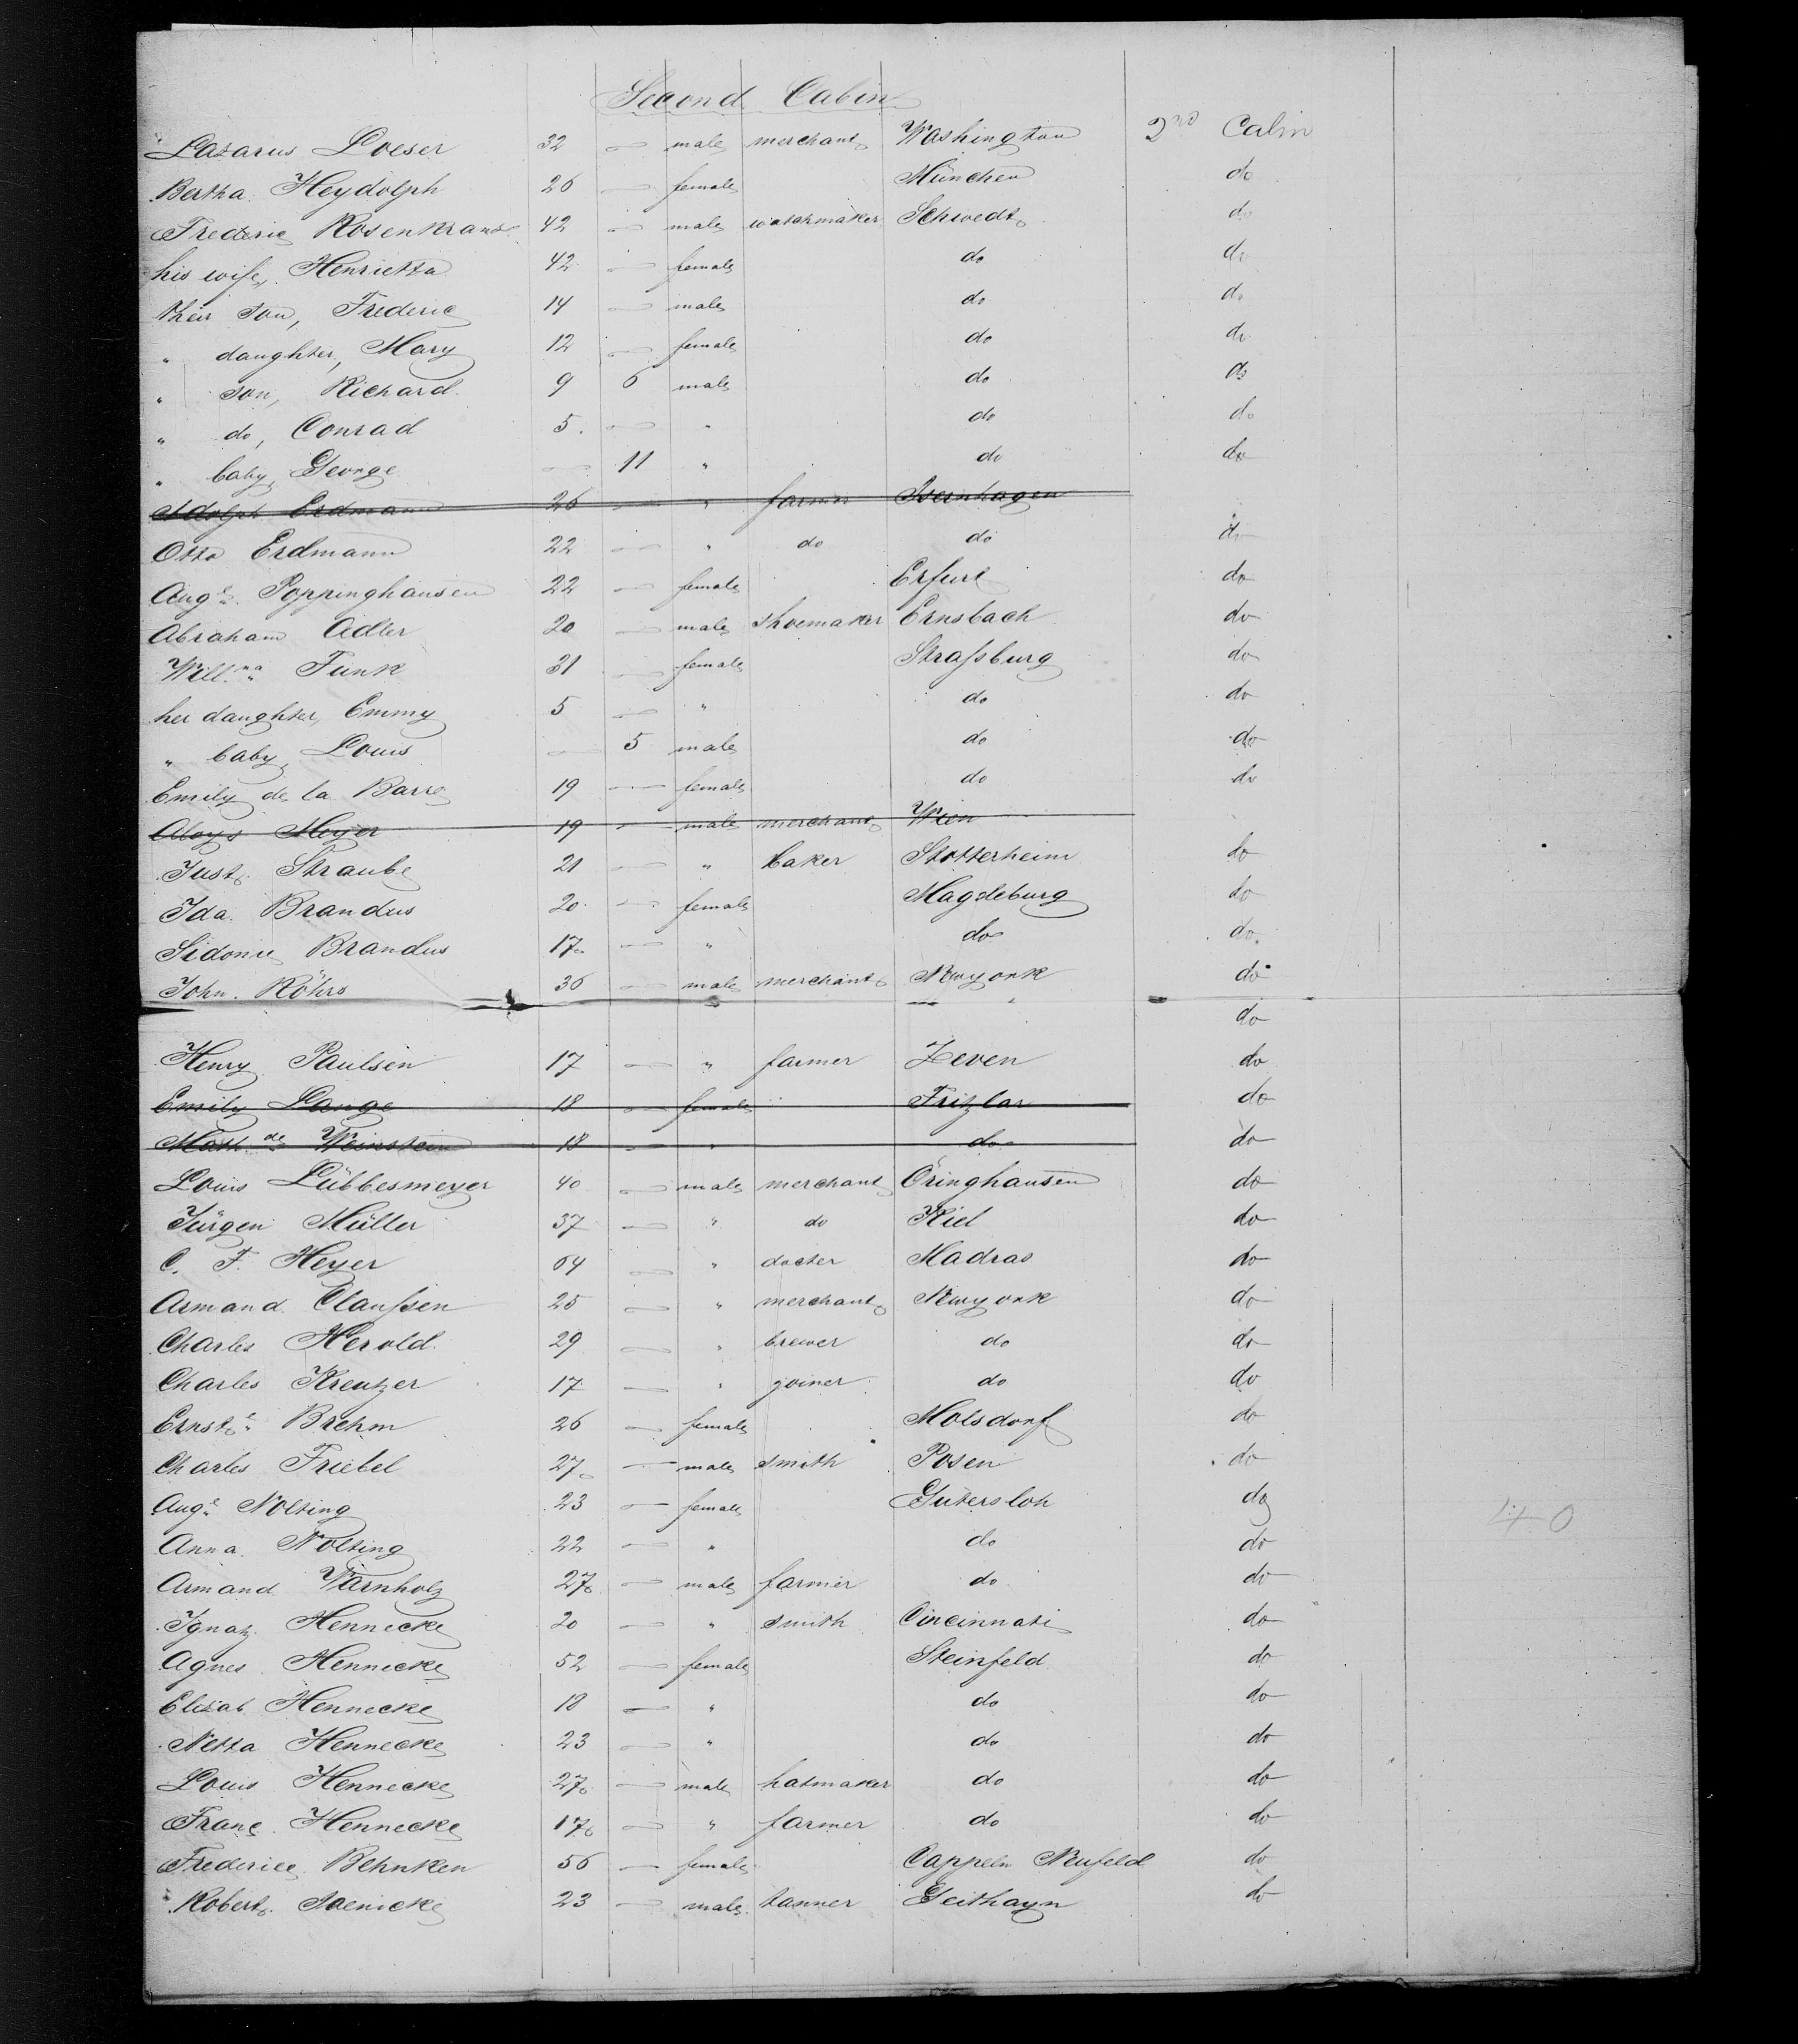 Second Cabin
Lazarus Loeser 32 — male merchant Washington 2nd Cabin
Bertha Heydolph 26 — female München do
Frederic Rosenkranz 42 — male watchmaker Schwedt do
his wife, Henrietta 42 — female do do
their son, Frederic 14 — male do do
" daughter, Mary 12 — female do do
" son, Richard 9 6 male do do
" do, Conrad 5 — " do do
" baby, George — 11 " do do
Adolph Erdmann 26 — " farmer Isernhagen
Otto Erdmann 22 — " do do do
Auge Poppinghausen 22 — female Erfurt do
Abraham Adler 20 — male shoemaker Ernsbach do
Willna Funk 31 — female Straßburg do
her daughter, Emmy 5 — " do do
" baby, Louis — 5 male do do
Emily de la Barre 19 — female do do
Aloys Meyer 19 — male merchant Wien
Just Straube 21 — " baker Stotterheim do
Ida Brandus 20 — female Magdeburg do
Sidonie Brandus 17 — " do do
John Röhrs 36 — male merchant Newyork do
do
Henry Paulsen 17 — " farmer Zeven do
Emily Lange 18 — female Fritzlar do
Mathde Weinstein 18 — " do do
Louis Lübbesmeyer 40 — male merchant Öringhausen do
Jürgen Müller 37 — " do Kiel do
C. F. Heyer 64 — " docter Madras do
Armand Claußen 25 — " merchant Newyork do
Charles Herold 29 — " brewer do do
Charles Kreutzer 17 — " joiner do do
Ernste Brehm 26 — female Molsdorf do
Charles Friebel 27 — male smith Posen do
Auge Nolting 23 — female Gütersloh do
Anna Nolting 22 — " do do
Armand Varnholz 27 — male farmer do do
Ignatz Hennecke 20 — " smith Cincinnati do
Agnes Hennecke 52 — female Steinfeld do
Elisab Hennecke 18 — " do do
Netta Hennecke 23 — " do do
Louis Hennecke 27 — male hatmaker do do
Franc Hennecke 17 — " farmer do do
Frederice Behnken 56 — female Cappeln Neufeld do
Robert Jaenicke 23 — male tanner Geithayn do
40